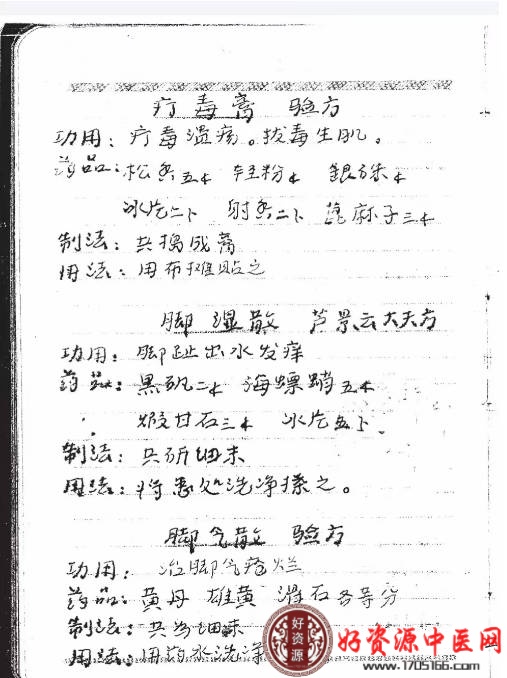 疔毒膏 验方
功用：疔毒溃疡。拔毒生肌。
药品：松香五 轻粉 银硃
冰片二卜 射香二卜 蓖麻子三
制法：共捣成膏
用法：用布摊贴之
脚湿散 芦景云大夫方
功用：脚趾出水发痒
药品：黑矾二 海螵蛸五
煅甘石三 冰片五卜
制法：共研细末
用法：将患处洗净搽之。
脚气散 验方
功用：治脚气疮烂
药品：黄丹 雄黄 滑石各等分
制法：共为细末
用法：用药水洗净
好资源
好资源中医网
www.1705166.com